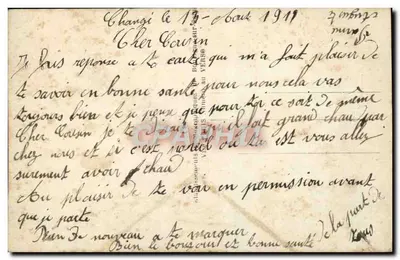 Changé le 13 Aout 1917
Cher Cousin
Je fais reponse a ta carte qui m'a fait plaisir de
te savoir en bonne santé pour nous cela vas
toujours bien et je pense que pour toi ce soit de même
Cher Cousin je te dirai il fait grand chaud par
chez nous et si c'est pareil où la est vous allez
surement avoir chaud
Au plaisir de te voir en permission avant
que je parte
Rien de nouveau a te marquer
Bien le bonsoir et bonne santé
de la part de
tous